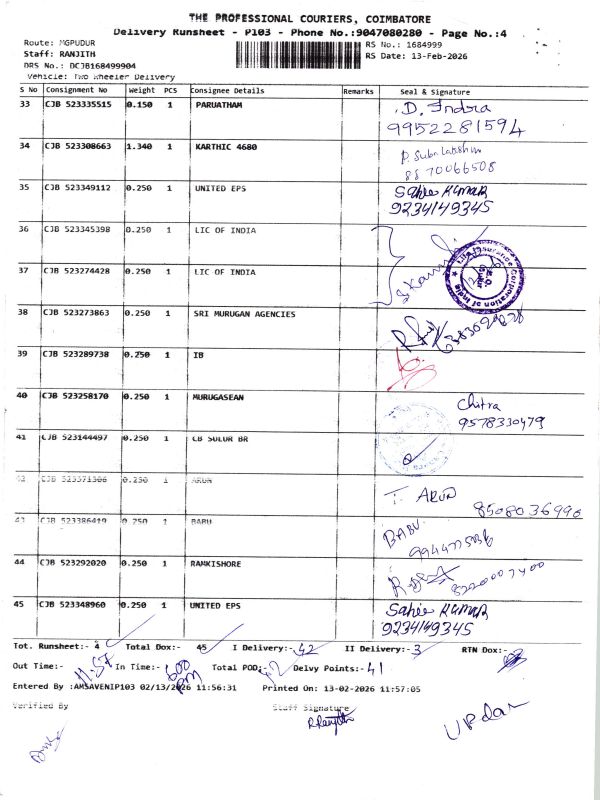 THE PROFESSIONAL COURIERS, COIMBATORE
Delivery Runsheet - P103 - Phone No.:9047080280 - Page No.:4
Route: MGPUDUR
RS No.: 1684999
Staff: RANJITH
RS Date: 13-Feb-2026
DRS No.: DCJB168499904
Vehicle: Two Wheeler Delivery
S No Consignment No Weight PCS Consignee Details Remarks Seal & Signature
33 CJB 523335515 0.150 1 PARUATHAM D. Indra
9952281594
34 CJB 523308663 1.340 1 KARTHIC 4680 P. Suba Lakshmi
8870066508
35 CJB 523349112 0.250 1 UNITED EPS Sahie Kumar
9234149345
36 CJB 523345398 0.250 1 LIC OF INDIA
37 CJB 523274428 0.250 1 LIC OF INDIA
38 CJB 523273863 0.250 1 SRI MURUGAN AGENCIES
39 CJB 523289738 0.250 1 IB
40 CJB 523258170 0.250 1 MURUGASEAN Chitra
9578330479
41 CJB 523144497 0.250 1 CB SULUR BR
42 CJB 523371306 0.250 1 ARUN T. ARUN
8508036996
43 CJB 523386419 0.250 1 BABU BABU
44 CJB 523292020 0.250 1 RAMKISHORE
45 CJB 523348960 0.250 1 UNITED EPS Sahie Kumar
9234149345
Tot. Runsheet:- 4 Total Dox:- 45 I Delivery:- 42 II Delivery:- 3 RTN Dox:-
Out Time:- 11.57 In Time:- 600 PM Total POD:- 42 Delvy Points:- 41
Entered By :AMSAVENIP103 02/13/2026 11:56:31 Printed On: 13-02-2026 11:57:05
Verified By Staff Signature